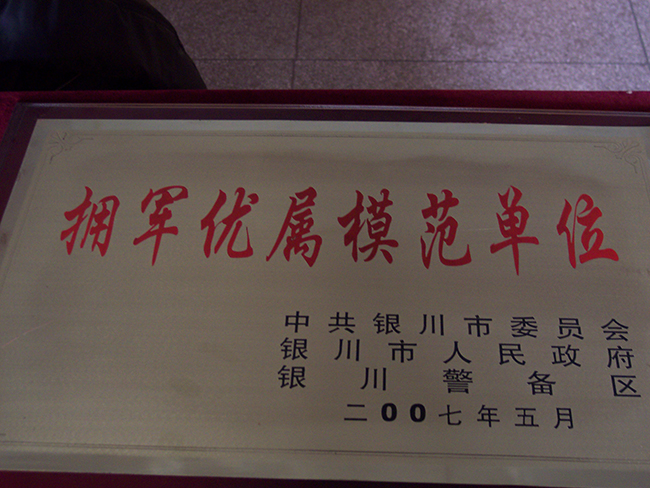 拥军优属模范单位
中共银川市委员会
银川市人民政府
银川警备区
二00七年五月